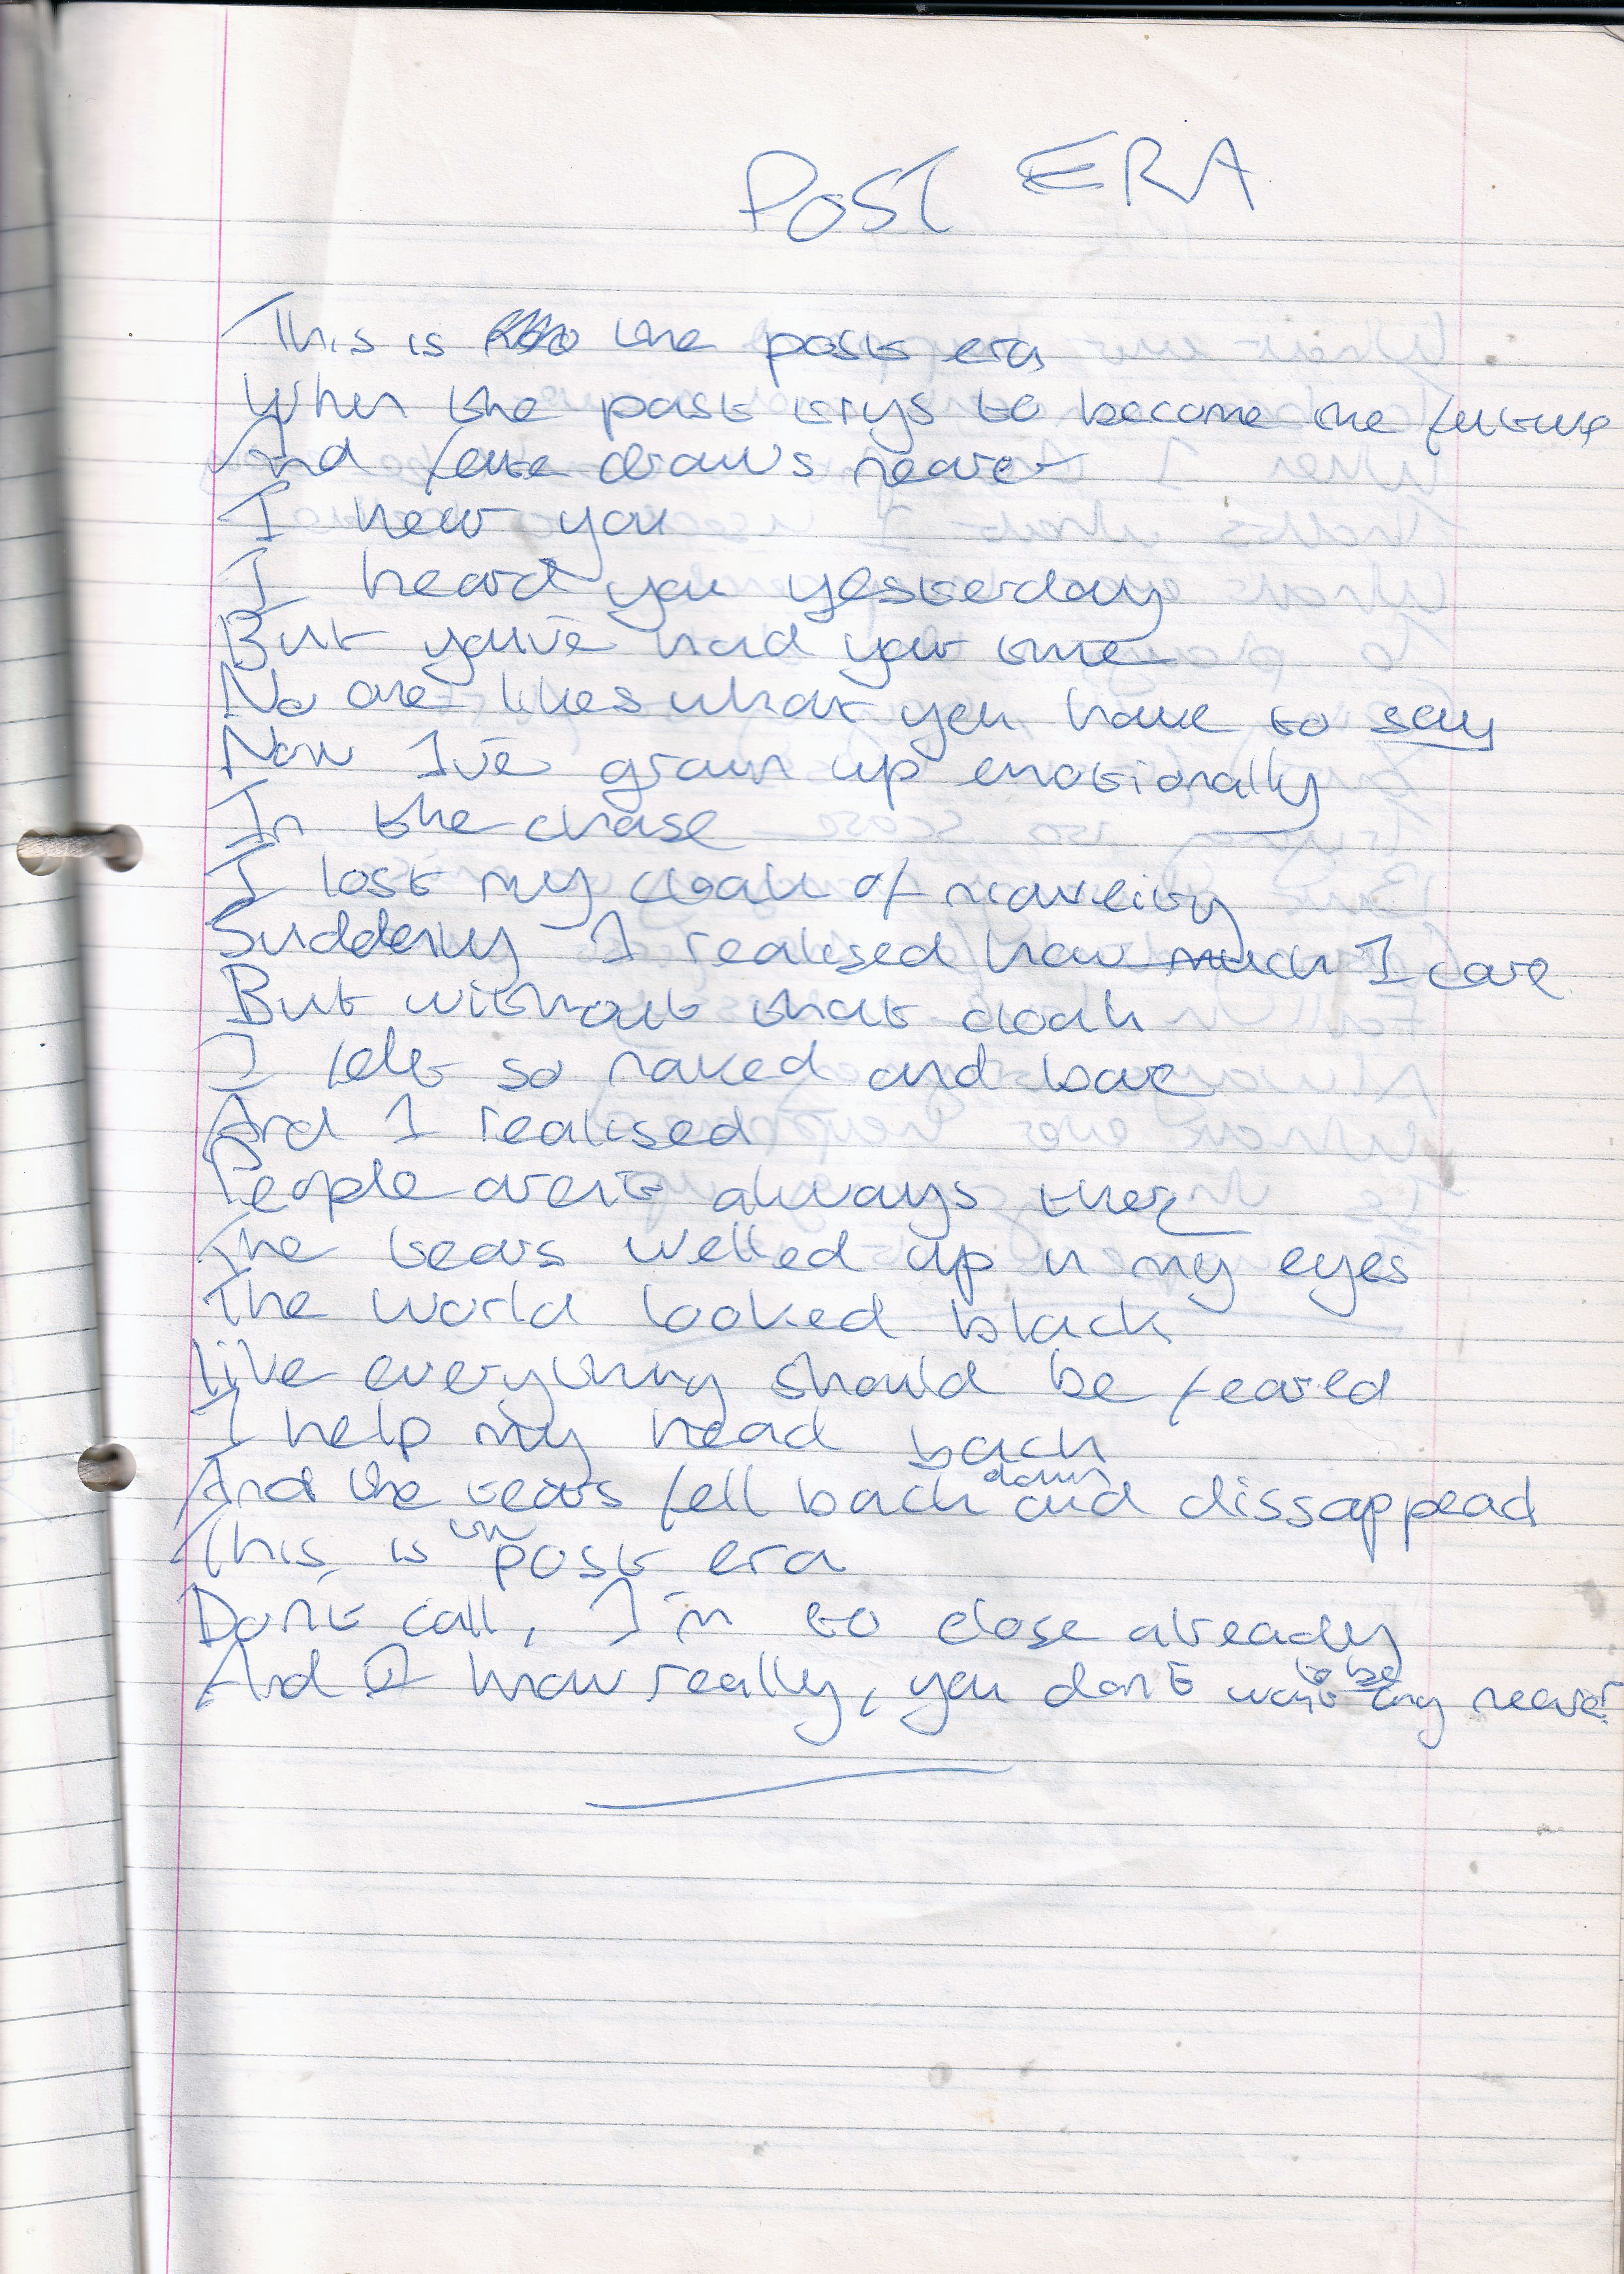 POST ERA
This is the post era
When the past trys to become the future
And fate draws nearer
I hear you
I heard you yesterday
But you've had your time
No one likes what you have to say
Now I've grown up emotionally
In the chase
I lost my cloak of
Suddenly I realised how much I care
But without that cloak
I felt so naked and bare
And I realised
People aren't always there
The tears welled up in my eyes
The world looked black
like everything should be feared
I help my head back
And the tears fell back down and dissappead
This is the post era
Don't call, I'm to close already
And I know really, you don't want to be any nearer